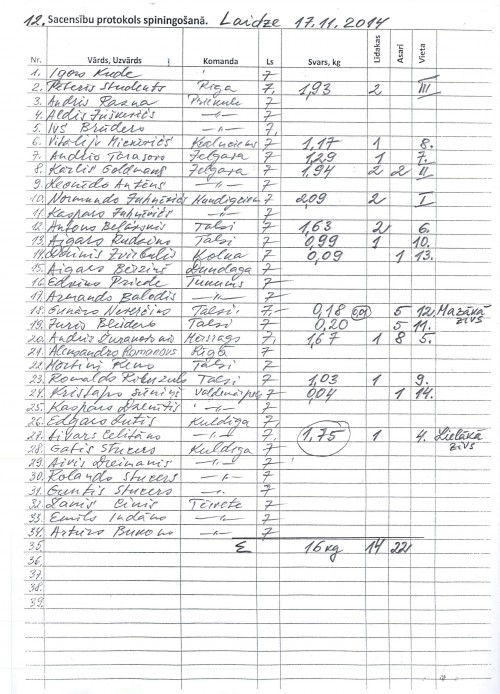 12. Sacensību protokols spiningošanā. Laidze 17.11.2014
Nr. Vārds, Uzvārds Komanda Ls Svars, kg Līdakas Asari Vieta
1. Igors Rude 7
2. Pēteris Students Rīga 7. 1,93 2 III
3. Andris Priekule 7
4. Aldis —"— 7
5. Ivo Brūders —"— 7.
6. Vitālijs 7 1,17 1 8.
7. Andris Tarasovs Jelgava 7 1,29 1 7.
8. Kārlis Goldmans Jelgava 7 1,94 2 2 II
9. Leonīds Antēns —"— 7
10. Normunds 7 2,09 2 I
11. Kaspars —"— 7
12. Antons Talsi 7 1,63 2 6.
13. Aigars Talsi 7 0,99 1 10.
14. Zvirbulis Kolka 7 0,09 1 13.
15. Aigars Bērziņš Dundaga 7
16. Edvīns Priede Tukums 7
17. Armands Balodis —"— 7
18. Gunārs Talsi 7. 0,18 0,01 5 12. Mazākā zivs
19. Juris Bleiders Talsi 7 0,20 5 11.
20. Andris Mērsrags 7. 1,67 1 8 5.
21. Aleksandrs Romanovs Rīga 7
22. Mārtiņš Talsi 7
23. Ronalds Talsi 7 1,03 1 9.
24. Kristaps Valdemārpils 7 0,04 1 14.
25. Kaspars —"— 7
26. Edgars Kuldīga 7
27. Aivars Celitāns —"— 7. 1,75 1 4. Lielākā zivs
28. Gatis Stucers Kuldīga 7
29. Aivis —"— 7
30. Rolands Stucers —"— 7
31. Guntis Stucers —"— 7
32. Tērvete 7
33. Emīls Indāns —"— 7
34. Artūrs —"— 7
35. Σ 16 kg 14 22
36.
37.
38.
39.